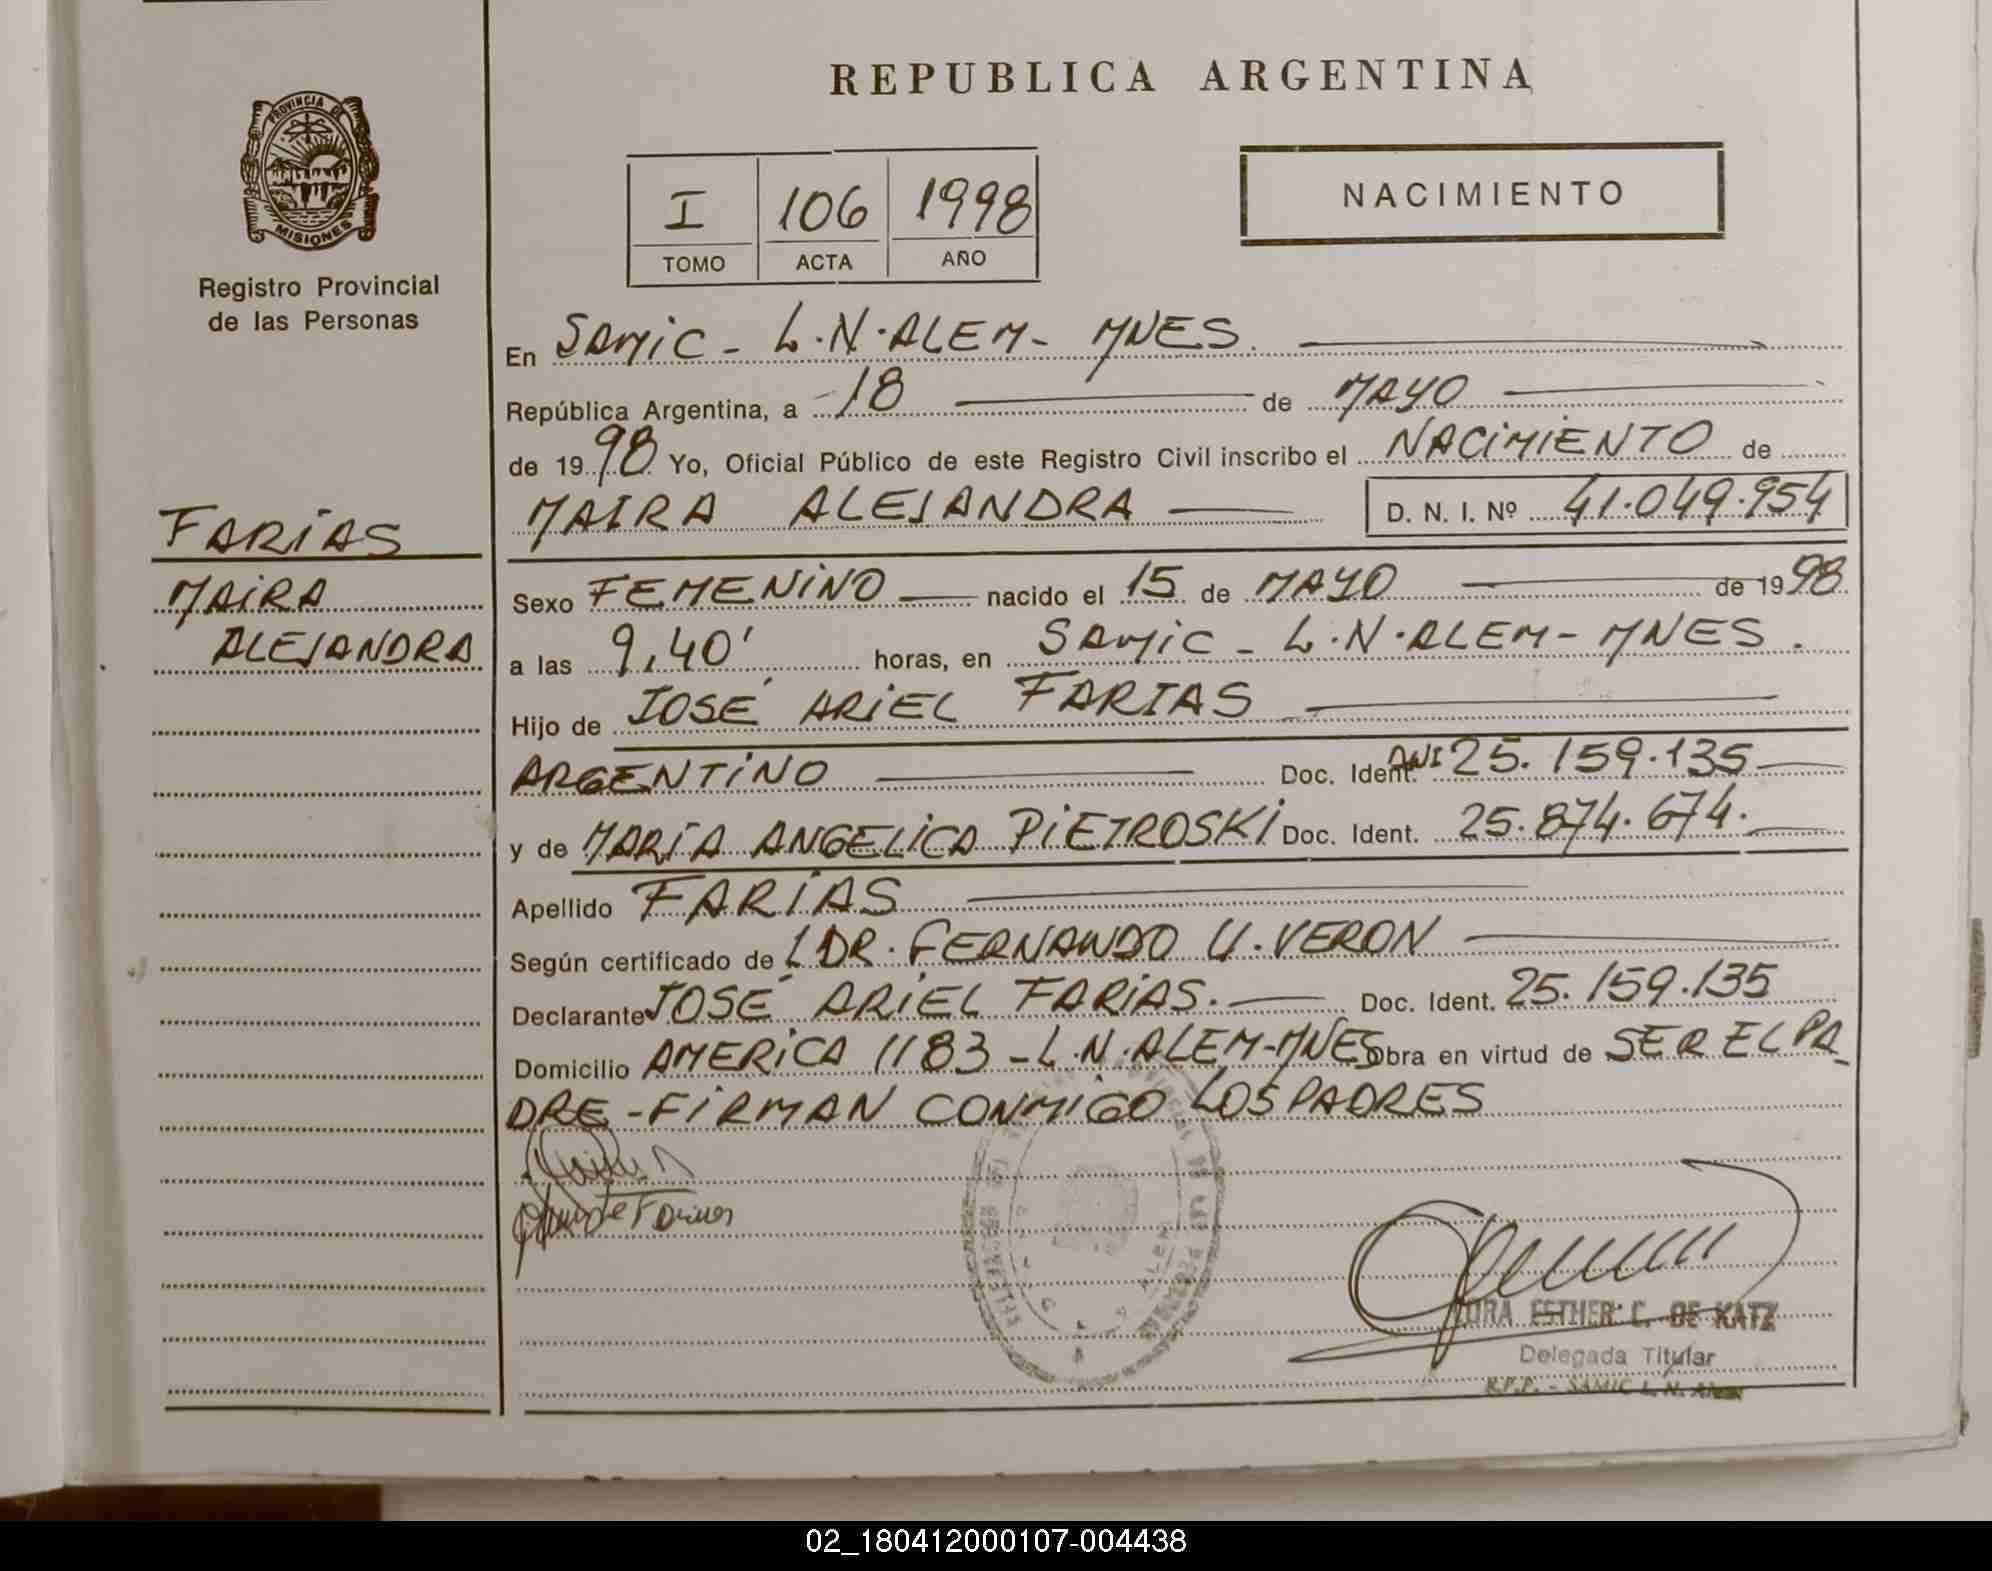 REPUBLICA ARGENTINA
PROVINCIA DE
MISIONES
Registro Provincial
de las Personas
I 106 1998
TOMO ACTA AÑO
NACIMIENTO
En SAMIC - L.N. ALEM - MNES.
República Argentina, a 18 de MAYO
de 1998 Yo, Oficial Público de este Registro Civil inscribo el NACIMIENTO de
MAIRA ALEJANDRA D. N. I. Nº 41.049.954
FARIAS
MAIRA
ALEJANDRA
Sexo FEMENINO nacido el 15 de MAYO de 1998
a las 9,40' horas, en SAMIC - L.N. ALEM - MNES.
Hijo de JOSÉ ARIEL FARIAS
ARGENTINO Doc. Ident. DNI 25.159.135
y de MARÍA ANGELICA PIETROSKI Doc. Ident. 25.874.674.
Apellido FARIAS
Según certificado de DR. FERNANDO U. VERON
Declarante JOSÉ ARIEL FARIAS. Doc. Ident. 25.159.135
Domicilio AMERICA 1183 - L.N. ALEM - MNES Obra en virtud de SER EL PA-
DRE - FIRMAN CONMIGO LOS PADRES
ESTHER C. DE KATZ
Delegada Titular
R.P.P. - SAMIC L. N. Alem
02_180412000107-004438